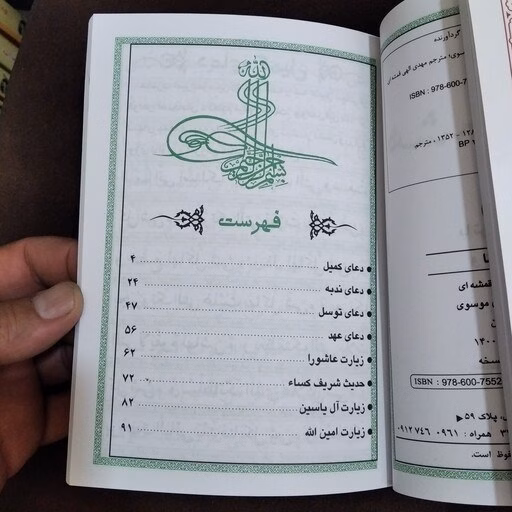 بسم الله الرحمن الرحیم
فهرست
دعای کمیل ........ ۴
دعای ندبه ........ ۲۴
دعای توسل ........ ۴۷
دعای عهد ........ ۵۶
زیارت عاشورا ........ ۶۲
حدیث شریف کساء ........ ۷۲
زیارت آل یاسین ........ ۸۲
زیارت امین الله ........ ۹۱
گردآورنده
مترجم مهدی الهی قمشه ای
ISBN : 978-600-7
۱۳۵۲ - ۱۲۸ ، مترجم
BP
قمشه ای
موسوی
۱۴۰۰
نسخه
ISBN : 978-600-7552
پلاک ۵۹
همراه : ۰۹۶۱ ۷۴۶ ۰۹۱۲
فوظ است.